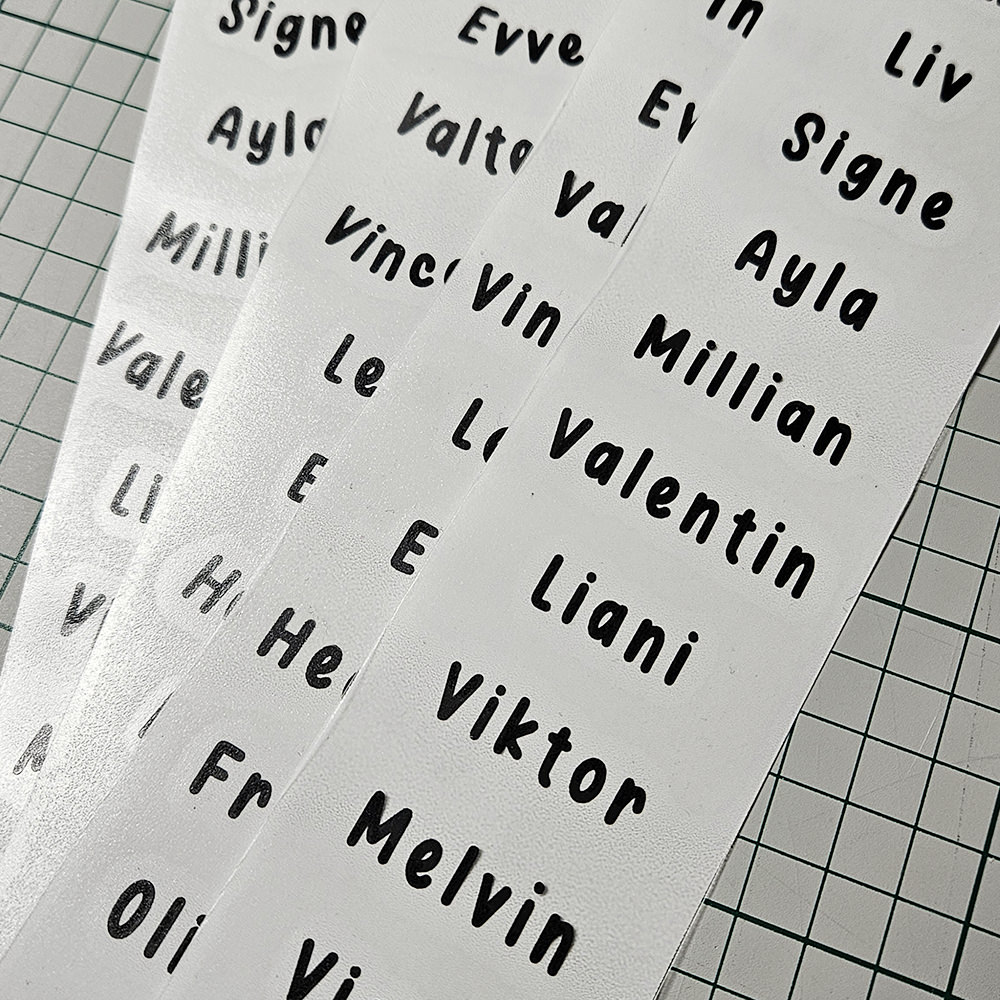 Signe
Ayla
Milli
Vale
Li
V
Evve
Valte
Vinc
Le
E
He
in
Ev
Va
Vin
Le
E
He
Fr
Oli
Liv
Signe
Ayla
Millian
Valentin
Liani
Viktor
Melvin
Vi